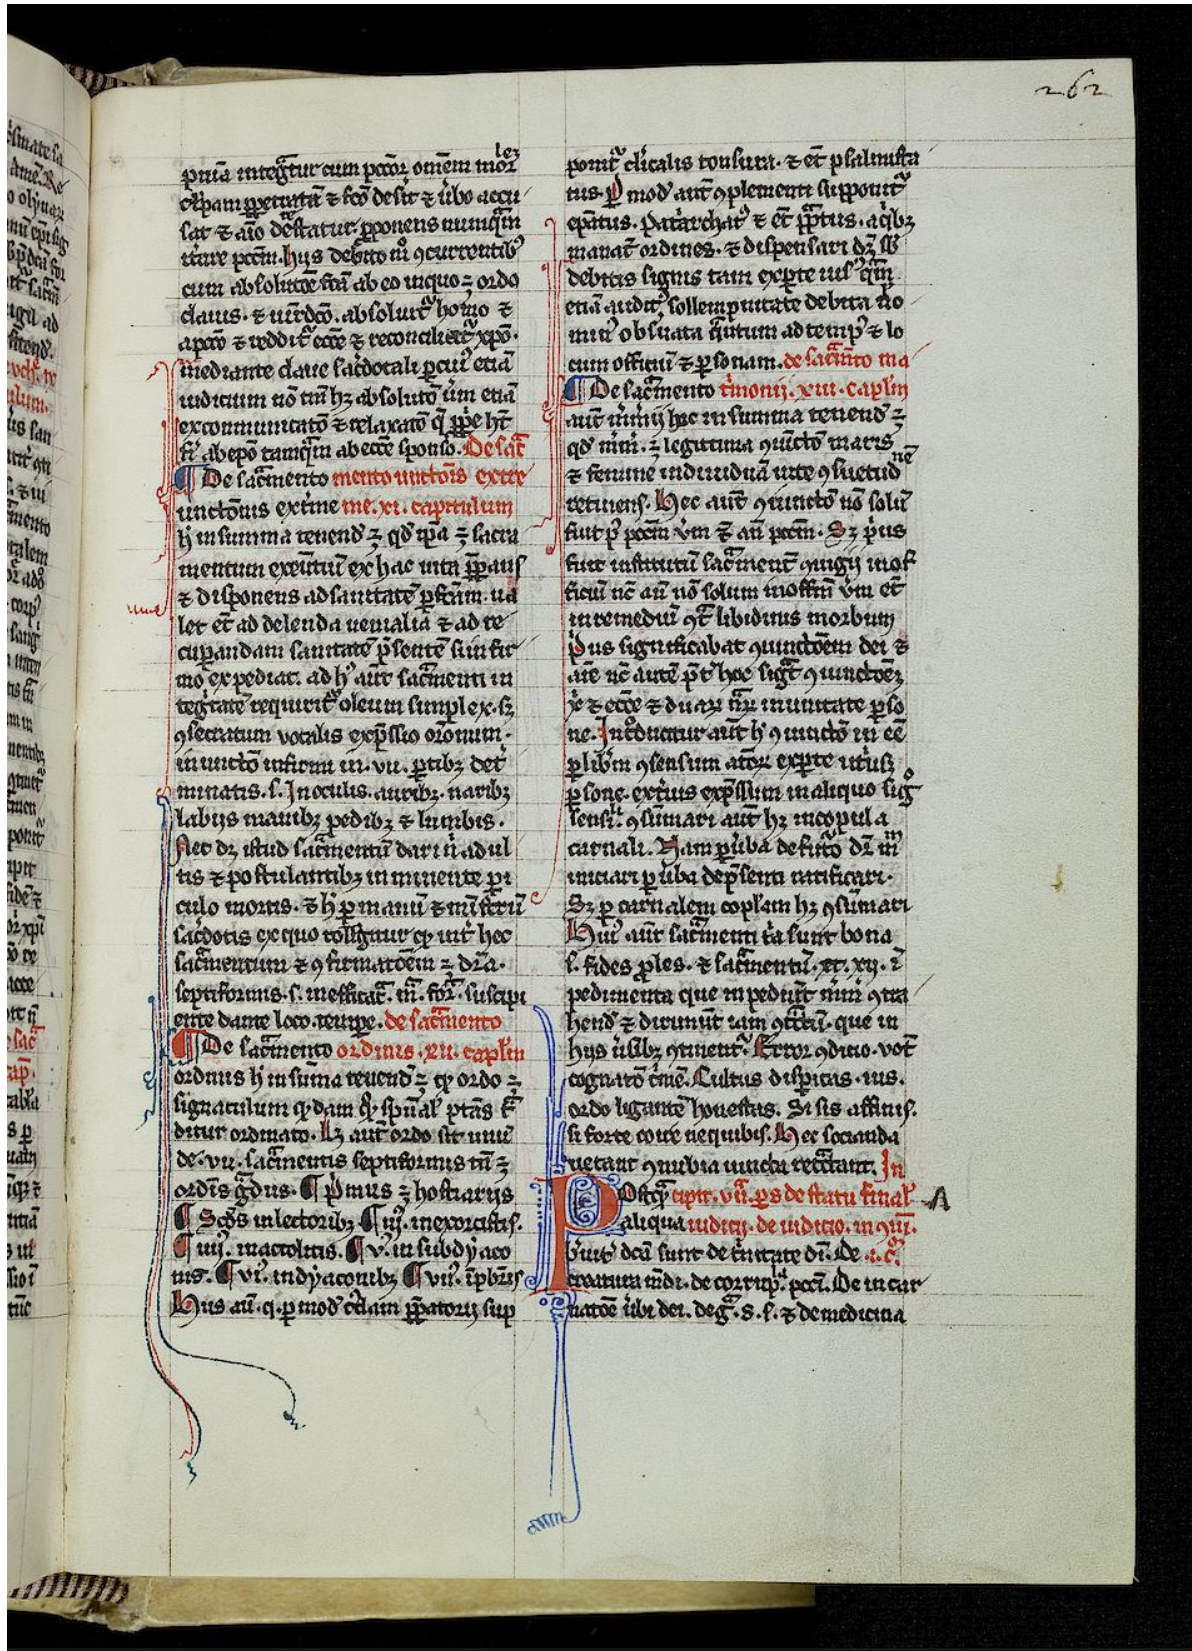 262
pn̄ia integrat̄ur cum pc̄cor omnem mortalem
culpam perpetratā & s̄co desit & ūbo accu
sat & aīo detestatur proponens nunquam
iterare pcc̄m. hijs debito mō ɔcurrentib⁹
cum absolutōe facta ab eo in quo ē ordo
clauis. & iurisdc̄o. absoluit̄ homo &
a pcc̄o & reddit̄ eccē & reconciliat̄ xp̄o.
mediante claue sac̄dotali per cui⁹ etiā
iudicium nō tm̄ hȝ absolutō
excommunicatō & relaxatō q̄ ꝓpe ht̄
fi ab ep̄o tamquam ab eccē sponso. De sac̄
¶ De sac̄amento mento unctōis extre
unctōnis extreme me. xi. capitulum
h̄ in summa tenend̄ ē, qd̄ ip̄a ē sacra
mentum exeuntiū ex hac uita p̄paans
& disponens ad sanitatē ꝑfectam. ua
let et̄ ad delenda uenialia & ad re
cuꝑandam sanitatē p̄sentē si infir
mo expediat. ad h⁹ aūt sac̄amenti in
tegritatē requirit̄ oleum simplex. sȝ
ɔsecratum vocalis exp̄ssio or̄onum.
inunctō infirmi in. vii. ꝑtibȝ det̄
minatis. s. In oculis. auribȝ. naribȝ
labijs manibȝ pedibȝ & lumbis.
Nec dȝ istud sac̄amentū dari n̄ adul
tis & postulantibȝ inminente ꝑi
culo mortis. & h̄ ꝑ manū & ministeriū
sac̄dotis ex quo colligitur qȝ int̄ hec
sac̄amentum & ɔfirmatōem ē dr̄a.
septiformis. s. in efficac̄. m̄. for̄. suscipi
ente dante loco. tempe. de sac̄amento
¶ De sac̄amento ordinis. xii. capl̄m
ordinis h̄ in summa tenend̄ ē qȝ ordo ē
signaculum q̄dam q̄ sp̄ual̄ ptās t̄
ditur ordinato. lȝ aūt ordo sit unū
de. vii. sac̄amentis septiformis tn̄ ē
ordīs gradus. ¶ Primus ē hostiarijs
¶ Scd̄s in lectoribȝ ¶ iij⁹. in exorcistis.
¶ iiij⁹. in accolitis. ¶ v⁹. in subdyaco
nis. ¶ vi⁹. in dyaconibȝ ¶ vij⁹. ī p̄br̄is
Hijs aūt. q. ꝑ mod̄ p̄paratorij sup
ponit̄ clericalis tonsura. & et̄ psalmista
tus. Per mod̄ aūt ɔplementi supponit̄
ep̄atus. Patriarchat⁹ & et̄ papatus. a q̄ibȝ
manāt ordines. & dispensari dn̄t sub
debitis signis tam ex ꝑte uis⁹ quam
etiā audit⁹ sollempnitate debita nō
min⁹ obseruata quantum ad temp⁹ & lo
cum officiū & ꝑsonam. de sac̄amento ma
¶ De sac̄amento trimonij. xiii. capl̄m
aūt m̄mij hec in summa tenend̄ ē
qd̄ m̄m̄. ē legittima ɔiunctō maris
& femine indiuiduā uite ɔsuetudinē
retinens. Hec aūt ɔiunctō nō solū
fuit p⁹ pcc̄m v̄m & an̄ pcc̄m. Sȝ p̄us
fuit institutū sac̄ament̄ ɔiugij in of
ficiū nc̄ aūt nō solum in officiū v̄m et̄
in remediū ɔtra libidinis morbum
p̄us significabat ɔiunctōem dei &
aīe nc̄ autē p̄t̄ hoc sig̅t ɔiunctōeȝ
xp̄i & eccē & duar̄ nar̄ in unitate ꝑso
ne. Introducitur aūt h⁹ ɔiunctō in eē
ꝑ lib̄m ɔsensum aīor̄ ex ꝑte utriusqȝ
ꝑsone. exterius exp̄ssum in aliquo sigo
sensili. ɔsumari aūt hȝ in copula
carnali. Nam ꝑ uerba de futuro dr̄ m̄m
iniciari ꝑ uerba de p̄senti ratificari.
Sȝ ꝑ carnalem copl̄am hȝ ɔsumari
Hui⁹ aūt sac̄amenti tria sunt bona
s. fides ꝓles. & sac̄amentū. Et. xij. ī
pedimenta que inpediūt m̄m̄ ɔtra
hend̄ & dirimūt iam ɔtractū. que in
hijs uersibȝ ɔtinent̄. Error ɔdicio. vot̄
cognatō c̄men. Cultus disparitas. uis.
ordo ligamē honestas. Si sis affinis.
si forte coire nequibis. Hec socianda
uetant ɔnubia iuncta retractant. In
Postqȝ cipit. vii. ꝑs de statu final̄
aliqua iudicij. de iudicio. in ɔmuni.
breuit⁹ dc̄a sunt de trinitate dī. De i. c̄.
creatura mūdi. de corrupt̄. pcc̄i. De incar
natōe uerbi dei. de gr̄a. s. s. & de medicina